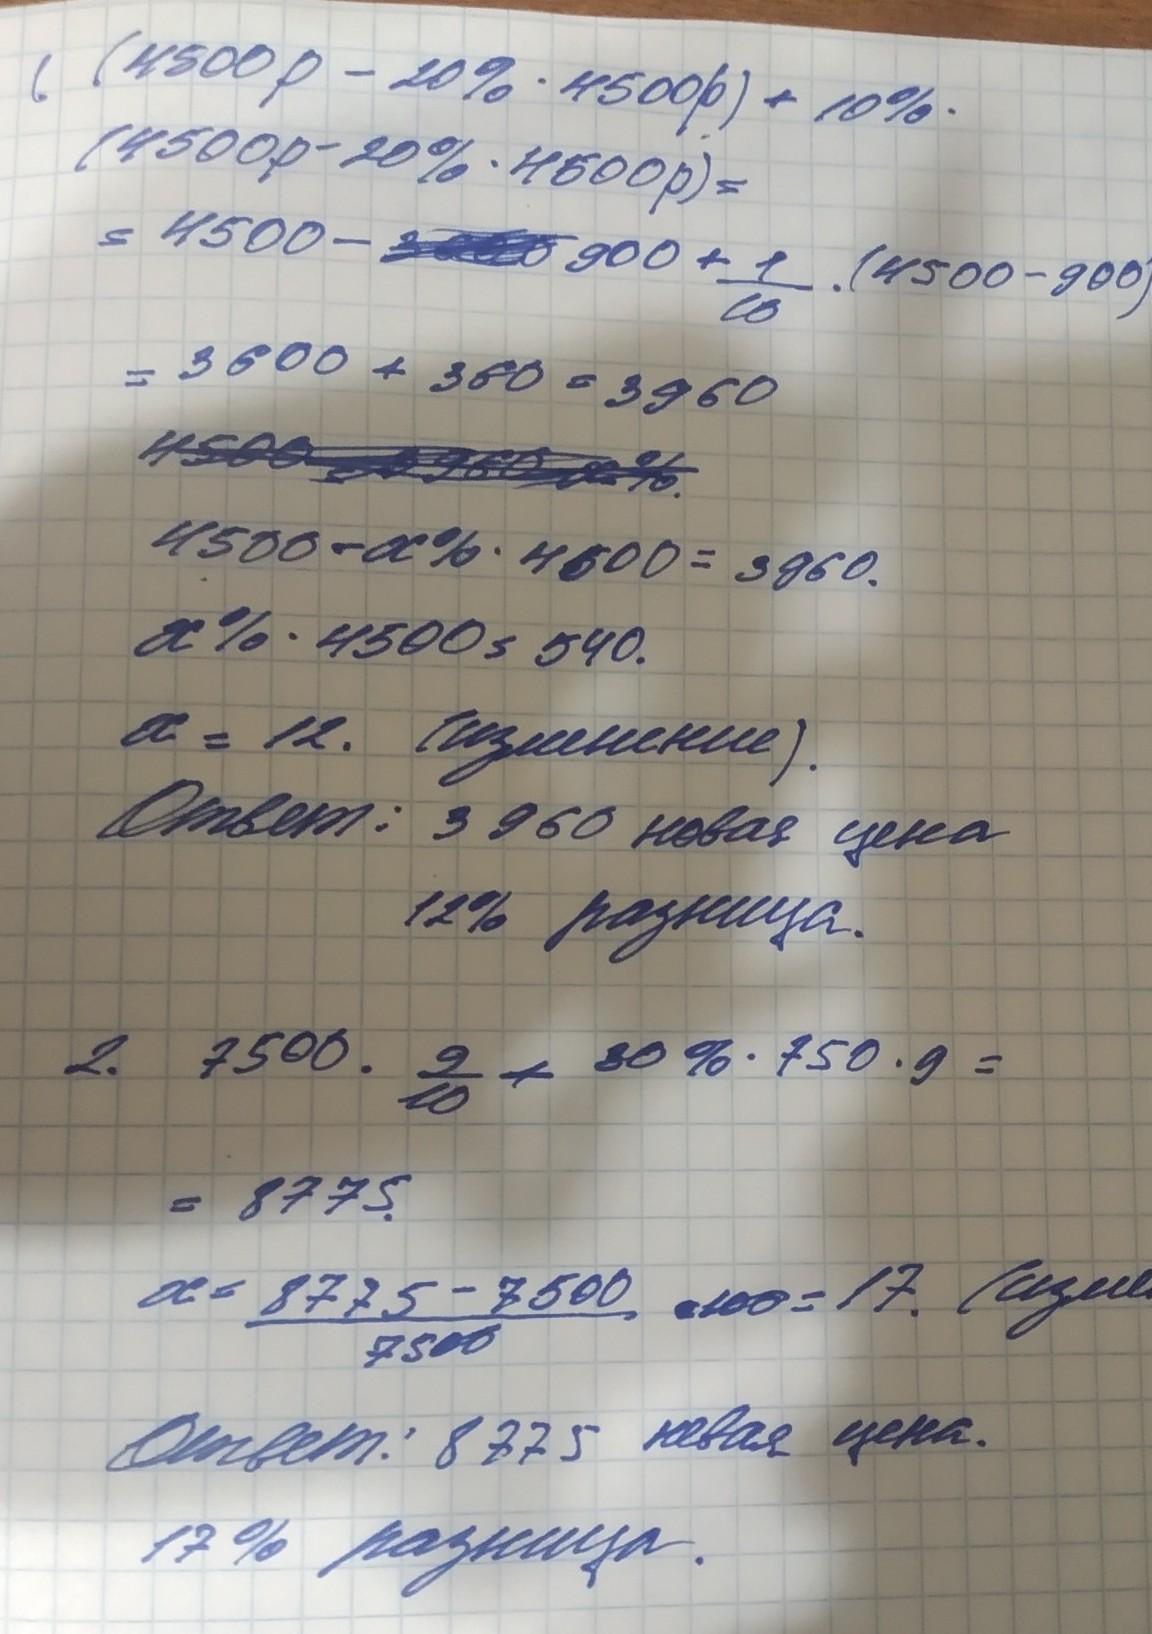 ( (4500р - 20% · 4500р) + 10% ·
(4500р - 20% · 4500р) =
= 4500 - 900 + 1/10 · (4500 - 900)
= 3600 + 360 = 3960
4500 - x% · 4500 = 3960.
x% · 4500 = 540.
x = 12. (изменение).
Ответ: 3960 новая цена
12% разница.
2. 7500 · 9/10 + 30% · 750 · 9 =
= 8775.
x = 8775 - 7500 / 7500 · 100 = 17. (изме
Ответ: 8775 новая цена.
17% разница.